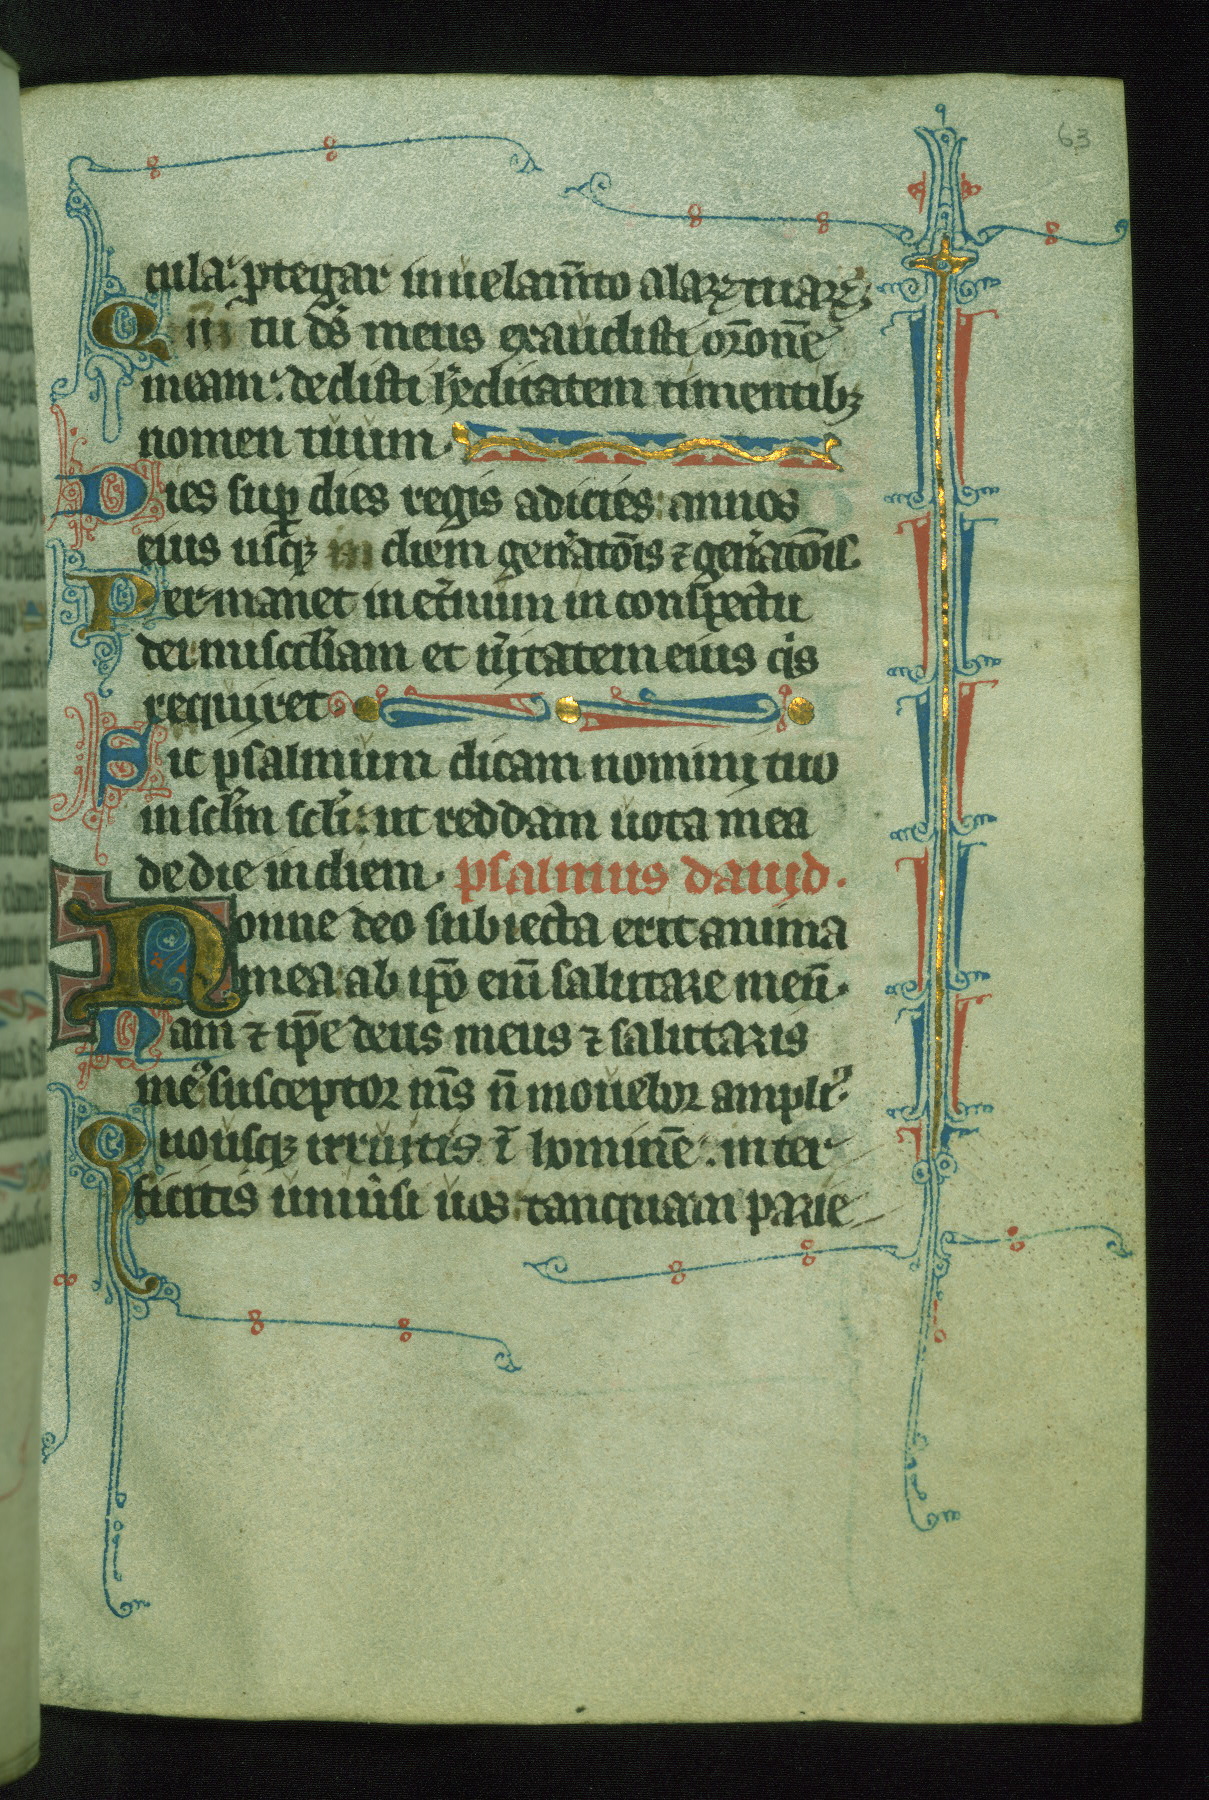 63
cula: ꝓtegar in uelam̄to alaꝝ tuaꝝ
Qm̄ tu ds̄ meus exaudisti or̄onē
meam: dedisti h̓editatem timentibꝫ
nomen tuum.
Dies suꝑ dies regis adicies: annos
eius usqꝫ in diem gen̓atōis ⁊ gen̓atōis.
Permanet in et̓num in conspectu
dei: misc̄diam et u̓itatem eius q̓s
requiret.
Sic psalmum dicam nomini tuo
in sclm̄ scli: ut reddam uota mea
de die in diem. psalmus dauid.
Nonne deo subiecta erit anima
mea ab ip̄o eni̅ salutare meū.
Nam ⁊ ip̄e deus meus ⁊ salutaris
meꝰ susceptor ms̄ n̄ mouebor ampliꝰ.
Quousqꝫ irruitis ī hominē: inter
ficitis uniu̓si uos: tanquam parie